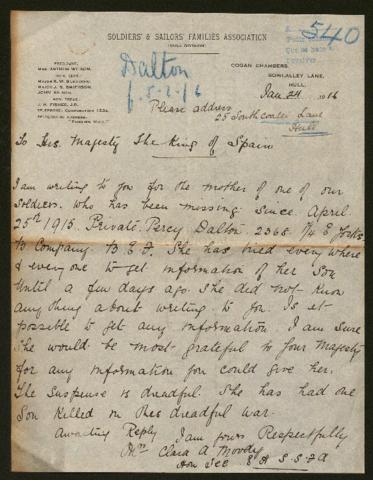 SOLDIERS' & SAILORS' FAMILIES ASSOCIATION
(HULL DIVISION)
540
PRESIDENT,
COGAN CHAMBERS,
BOWLALLEY LANE,
HULL.
Dalton
5-2-16
Jan 24 1916
Please address
25 Southcoates Lane
Hull
To His Majesty The King of Spain
I am writing to you for the mother of one of our
Soldiers. who has been missing since April
25th 1915. Private. Percy Dalton. 2368. 1/4 E Yorks.
B Company. B.E.F. She has tried every where
& every one to get information of her Son
Until a few days ago. She did not know
anything about writing to you. Is it
possible to get any information. I am sure
She would be most grateful to your Majesty
for any information you could give her.
The Suspense is dreadful. She has had one
Son killed in this dreadful war.
Awaiting Reply
I am yours Respectfully
Mrs Clara A Moody
Hon Sec S.S.F.A